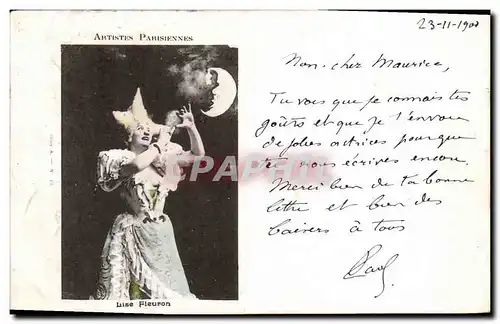 ARTISTES PARISIENNES
23-11-1900
Mon cher Maurice,
Tu vois que je connais tes
goûts et que je t'envoie
de jolies actrices pour que
tu nous écrives encore.
Merci bien de ta bonne
lettre et bien des
baisers à tous
Paul
CPArama
Lise Fleuron